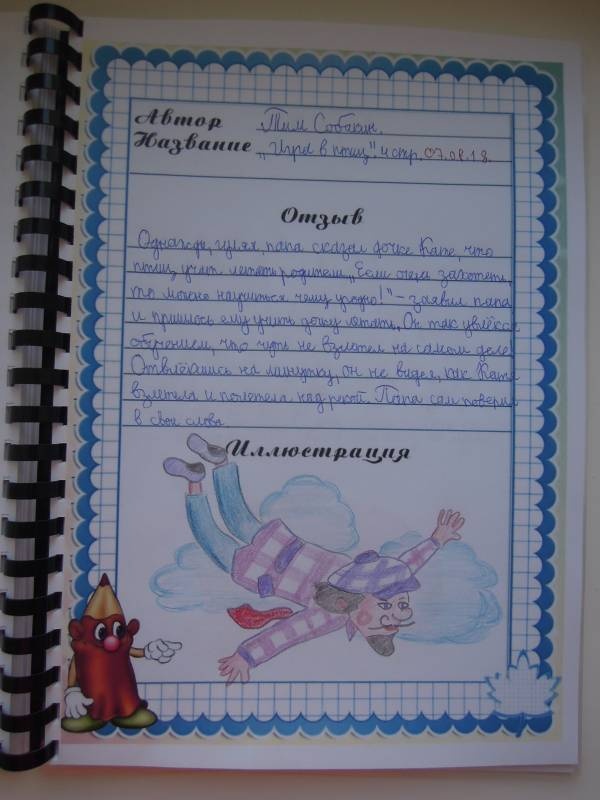 Автор Тим Собакин.
Название „Игра в птиц". 4 стр. 07.08.18.
Отзыв
Однажды, гуляя, папа сказал дочке Кате, что
птиц учат летать родители. „Если очень захотеть,
то можно научиться чему угодно!" – заявил папа
и пришлось ему учить дочку летать. Он так увлёкся
обучением, что чуть не взлетел на самом деле.
Отвлёкшись на минутку, он не видел, как Катя
взлетела и полетела над рекой. Папа сам поверил
в свои слова.
Иллюстрация